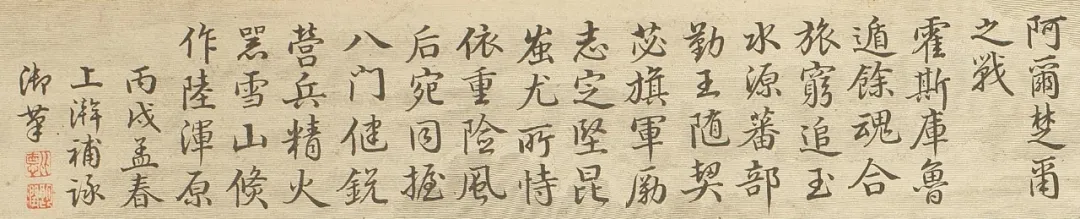 阿爾楚爾
之戰
霍斯庫魯
遁餘魂合
旅窮追玉
水源蕃部
勤王随契
苾旗軍勵
志定堅昆
蚩尤所恃
依重险風
后宛同握
八门健銳
營兵精火
器雪山倏
作陸渾原
丙戌孟春
上澣補詠
御筆